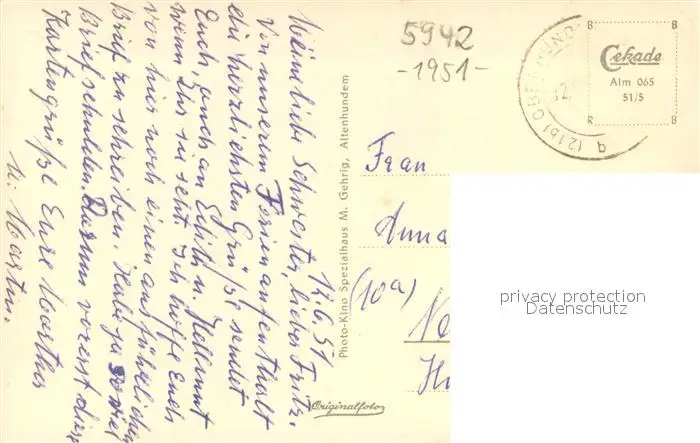 12.6.51
Meine liebe Schwester, lieber Fritz,
Von unserem Ferienaufenthalt
die herzlichsten Grüße sendet
Euch, auch an Edith u. Hellmut
wenn Ihr sie seht. Ich hoffe Euch
von hier noch einen ausführlichen
Brief zu schreiben. Habe ja soviel
Briefschulden. Darum vorerst diese
Kartengrüße Eure Marthes
u. Martin.
Photo-Kino Spezialhaus M. Gehrig, Altenhundem
Originalfoto
5942
-1951-
(21b) OBER
12.
B B
Cekade
Alm 065
51/5
R B
Frau
Anna
(10a)
privacy protection
Datenschutz